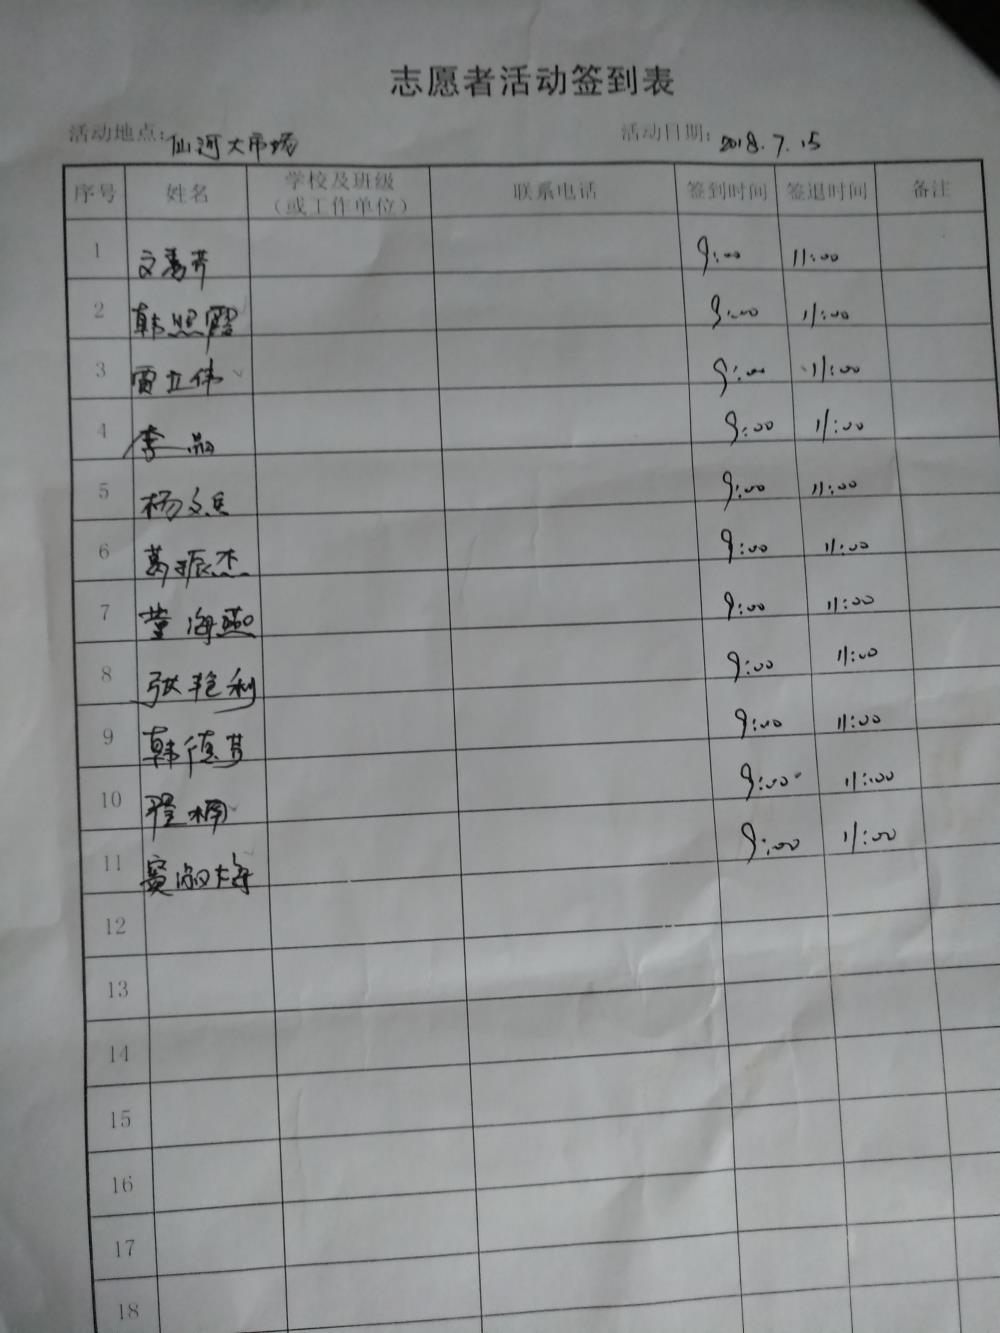 志愿者活动签到表
活动地点: 仙河大市场 活动日期: 2018.7.15
序号 姓名 学校及班级 联系电话 签到时间 签退时间 备注
（或工作单位）
1 文 芳 9:00 11:00
2 韩照霞 9:00 11:00
3 贾立伟 9:00 11:00
4 李 9:00 11:00
5 杨 9:00 11:00
6 葛振杰 9:00 11:00
7 董海燕 9:00 11:00
8 张艳利 9:00 11:00
9 韩德芳 9:00 11:00
10 程楠 9:00 11:00
11 窦淑梅 9:00 11:00
12
13
14
15
16
17
18